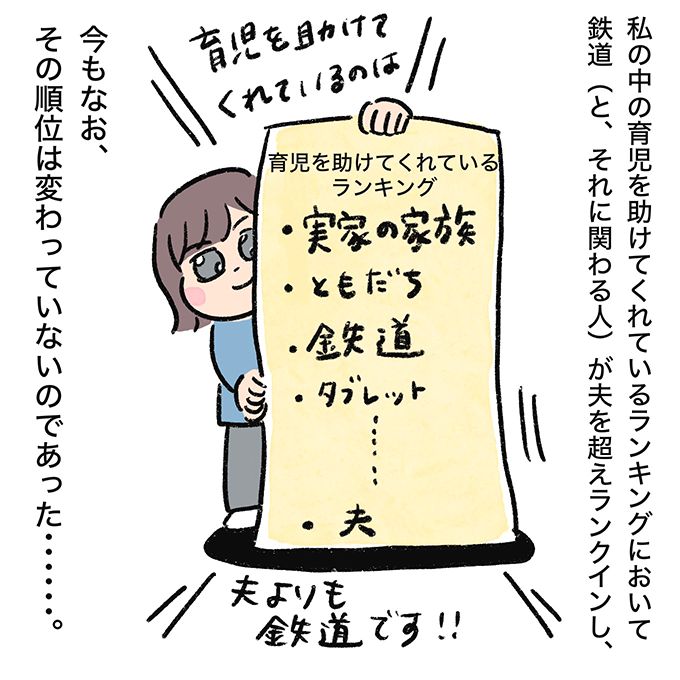 私の中の育児を助けてくれているランキングにおいて
鉄道（と、それに関わる人）が夫を超えランクインし、
育児を助けて
くれているのは
育児を助けてくれている
ランキング
・実家の家族
・ともだち
・鉄道
・タブレット
・・・・・・
・夫
夫よりも
鉄道です!!
今もなお、
その順位は変わっていないのであった・・・・・・。